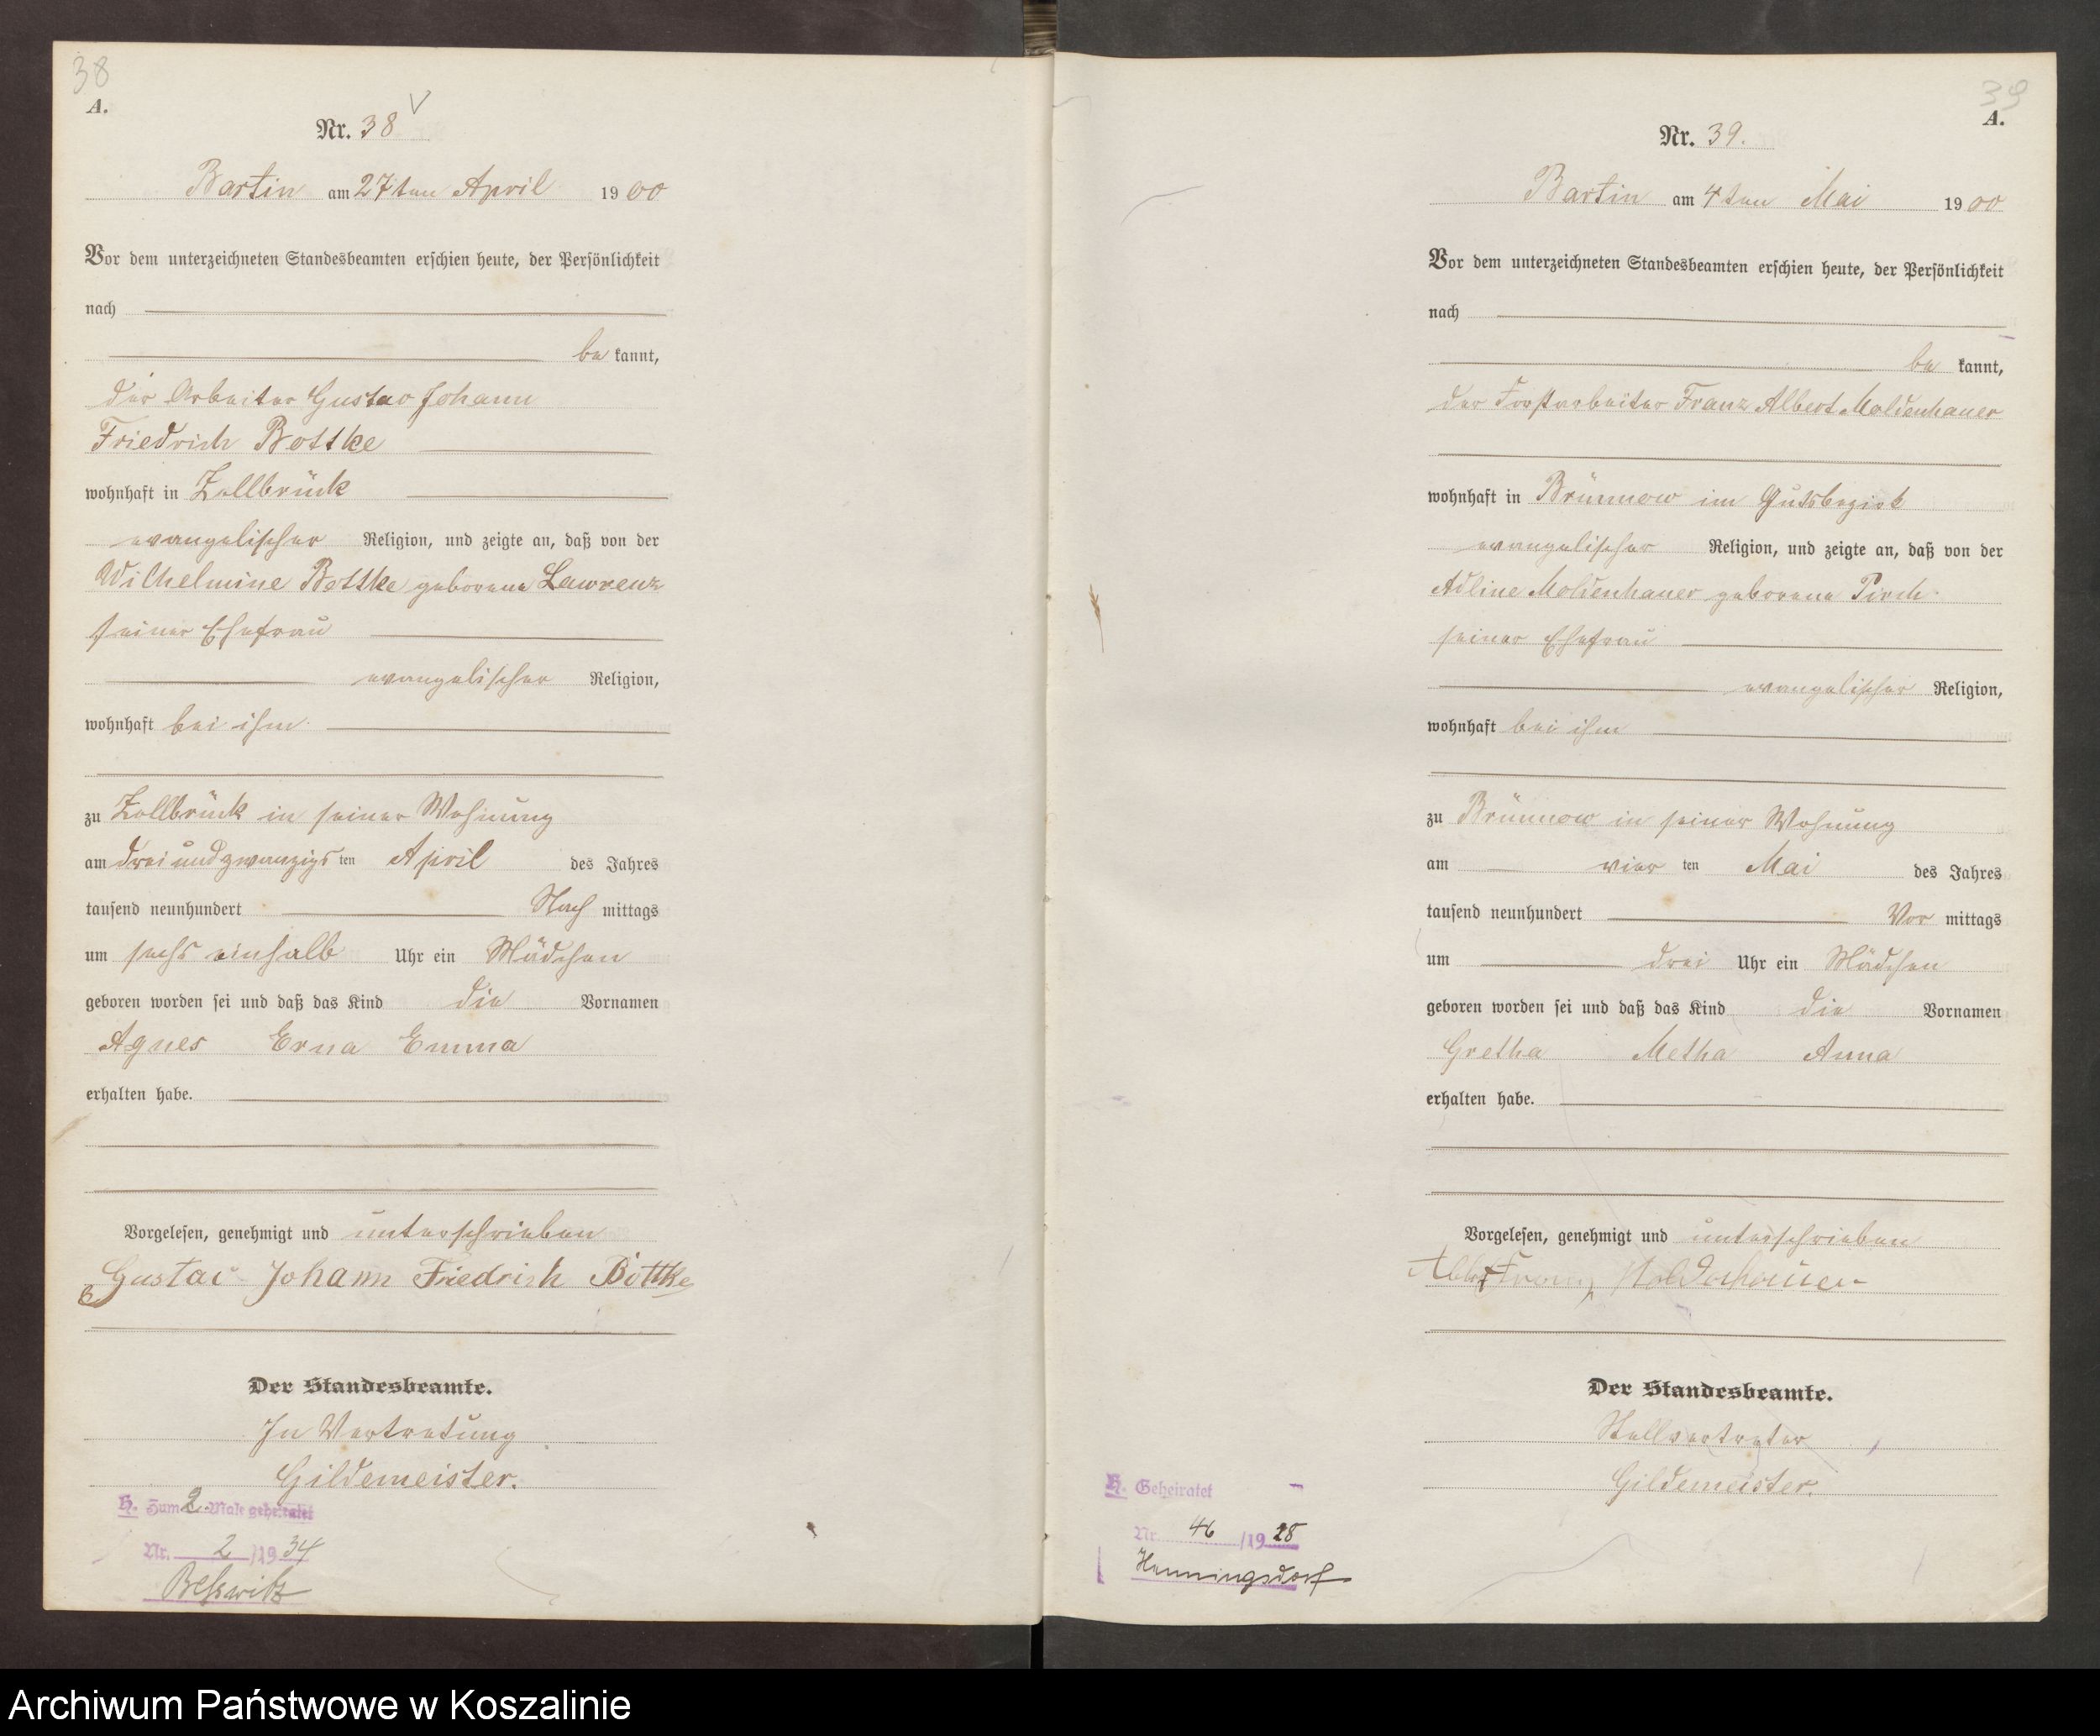 38
A.
Nr. 38
Bartin am 27ten April 1900
Vor dem unterzeichneten Standesbeamten erschien heute, der Persönlichkeit
nach
be kannt,
der Arbeiter Gustav Johann
Friedrich Bottke
wohnhaft in Zollbrück
evangelischer Religion, und zeigte an, daß von der
Wilhelmine Bottke geborene Lawrenz
seiner Ehefrau
evangelischer Religion,
wohnhaft bei ihm
zu Zollbrück in seiner Wohnung
am dreiundzwanzigsten April des Jahres
tausend neunhundert Nach mittags
um sechs einhalb Uhr ein Mädchen
geboren worden sei und daß das Kind die Vornamen
Agnes Erna Emma
erhalten habe.
Vorgelesen, genehmigt und unterschrieben
Gustav Johann Friedrich Bottke
Der Standesbeamte.
In Vertretung
Gildemeister.
H. Zum 2. Male geheiratet
Nr. 2/1934
39
A.
Nr. 39.
Bartin am 4ten Mai 1900
Vor dem unterzeichneten Standesbeamten erschien heute, der Persönlichkeit
nach
be kannt,
der Forstarbeiter Franz Albert Moldenhauer
wohnhaft in Brünnow im Gutsbezirk
evangelischer Religion, und zeigte an, daß von der
Adline Moldenhauer geborene Pirch
seiner Ehefrau
evangelischer Religion,
wohnhaft bei ihm
zu Brünnow in seiner Wohnung
am vierten Mai des Jahres
tausend neunhundert Vor mittags
um drei Uhr ein Mädchen
geboren worden sei und daß das Kind die Vornamen
Gretha Metha Anna
erhalten habe.
Vorgelesen, genehmigt und unterschrieben
Albert Franz Moldenhauer
Der Standesbeamte.
Stellvertreter
Gildemeister.
H. Geheiratet
Nr. 46/1928
Henningsdorf
Archiwum Państwowe w Koszalinie